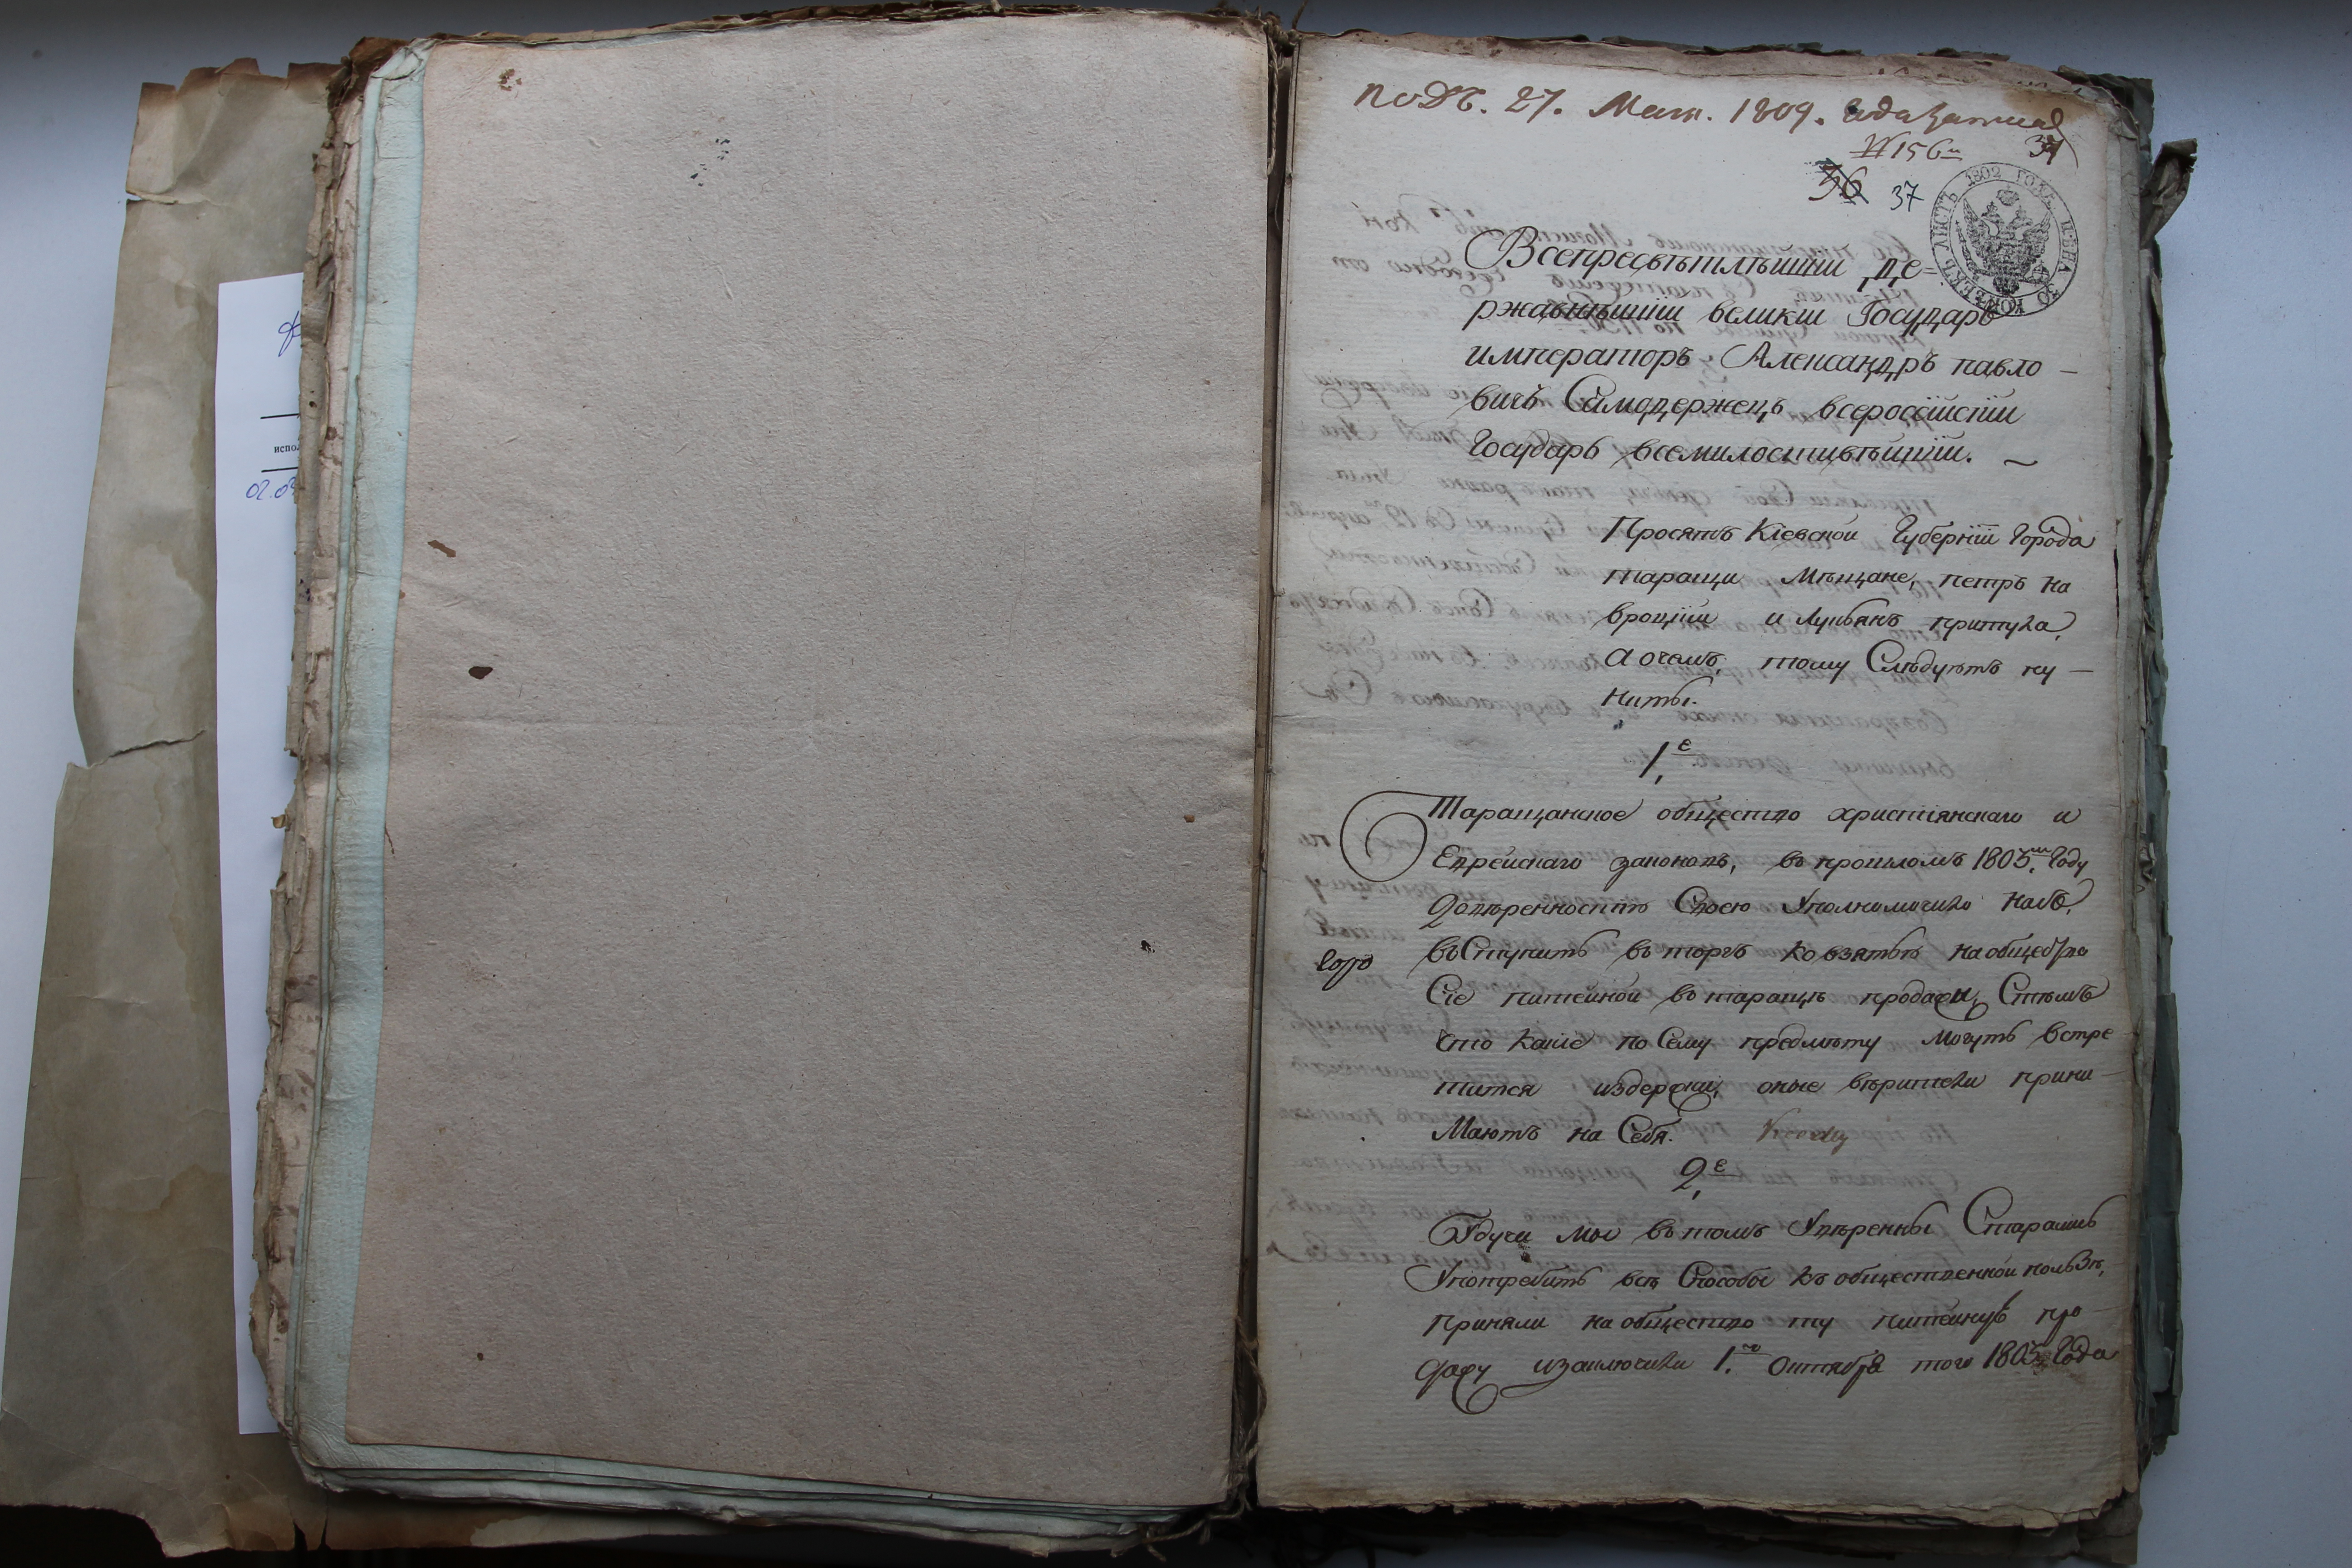 подъ. 27. Мая. 1809. и да записав
№ 156й 37
36 37
ЛИСТЪ 1802 ГОДА. ЦѢНА 30 КОПѢЕКЪ
Всепресвѣтлѣйшій де=
ржавнѣйшій великій Государь
императоръ Александръ павло –
вичь Самодержецъ всероссійскій
Государь всемилостивѣйшій. –
Просятъ Кіевской Губерніи Города
таращи Мѣщане, петръ на
вроцкій и Лукіянъ притула,
а очемъ, тому Слѣдуютъ пу –
нкты.
1.е
Таращанское общество христіянскаго и
Еврейскаго законовъ, въ прошломъ 1805.м Году
Довѣренностію Своею Уполномочило насъ,
въступить въ торгъ ко взятью на общество
Сіе питейной въ таращѣ продажи, Стѣмъ
что какіе по Сему предмѣту Могутъ встре
тится издержки, оные вѣрители прини –
Маютъ на Себя.
2.е
Будучи мы въ томъ Увѣренны Старались
Употребить всѣ Способы къ общественной пользѣ,
приняли на общество ту питейную про
дажу изаключили 1.го октября того 1805 Года
испол
02.03